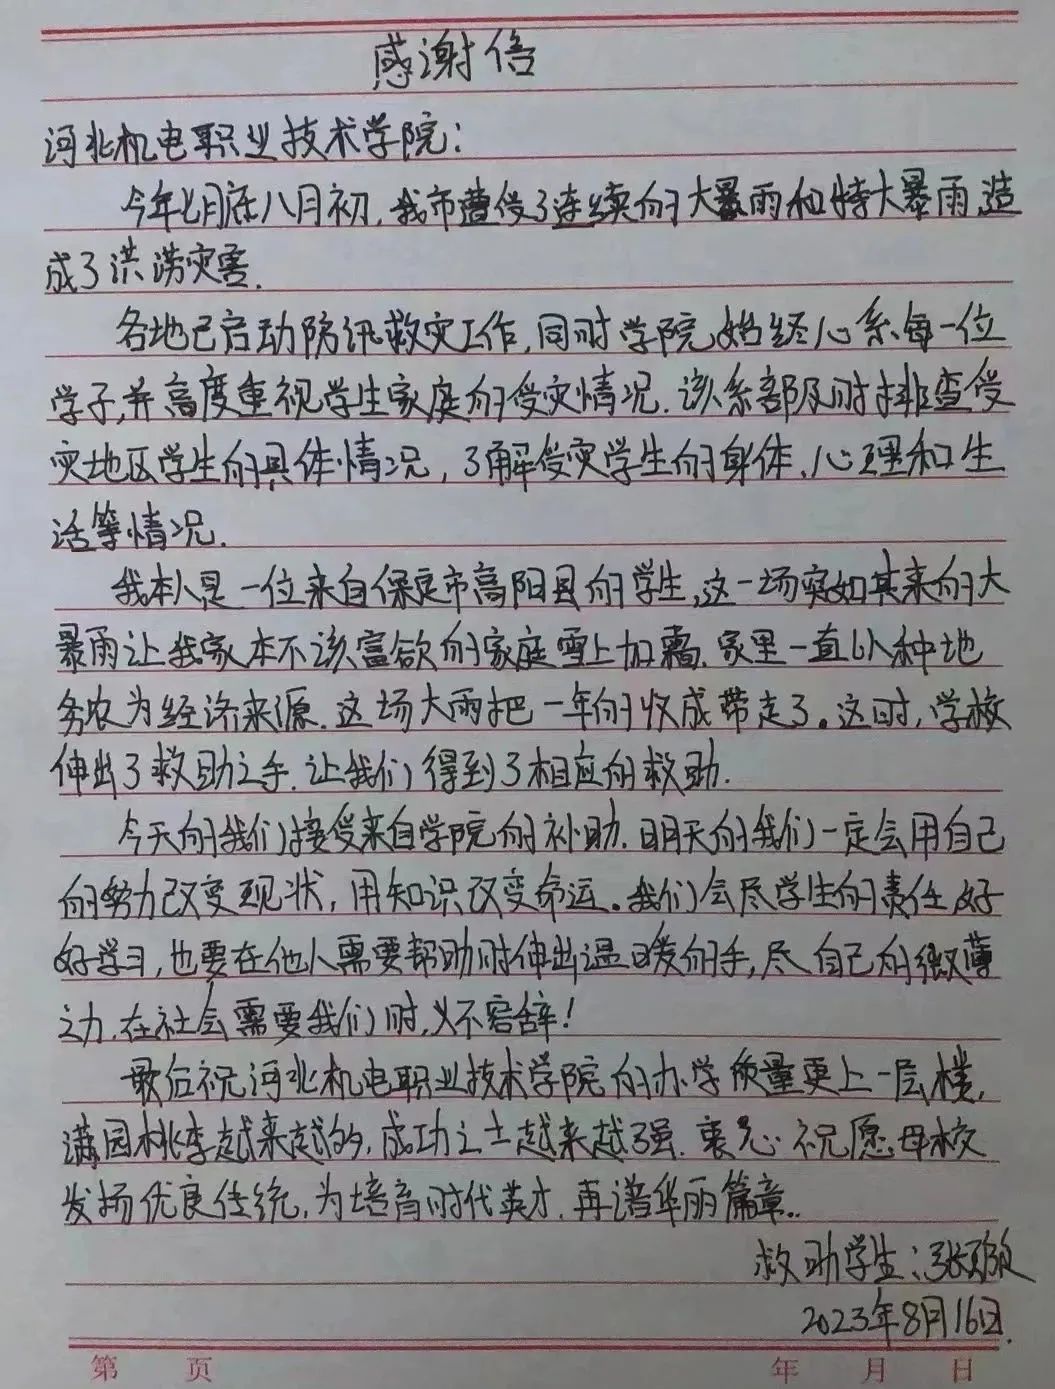 感谢信
河北机电职业技术学院:
今年七月底八月初,我市遭受了连续的大暴雨和特大暴雨,造
成了洪涝灾害.
各地已启动防汛救灾工作,同时学院始终心系每一位
学子,并高度重视学生家庭的受灾情况.该系部及时排查受
灾地区学生的具体情况,了解受灾学生的身体、心理和生
活等情况.
我本人是一位来自保定市高阳县的学生,这一场突如其来的大
暴雨让我家本不该富欲的家庭雪上加霜.家里一直以种地
务农为经济来源.这场大雨把一年的收成带走了。这时,学校
伸出了救助之手.让我们得到了相应的救助.
今天的我们接受来自学院的补助.明天的我们一定会用自己
的努力改变现状,用知识改变命运。我们会尽学生的责任好
好学习,也要在他人需要帮助时伸出温暖的手,尽自己的微薄
之力.在社会需要我们时,义不容辞!
最后祝河北机电职业技术学院的办学质量更上一层楼,
满园桃李越来越多,成功之士越来越强.衷心祝愿母校
发扬优良传统,为培育时代英才.再谱华丽篇章..
救助学生:张
2023年8月16日.
第 页 年 月 日